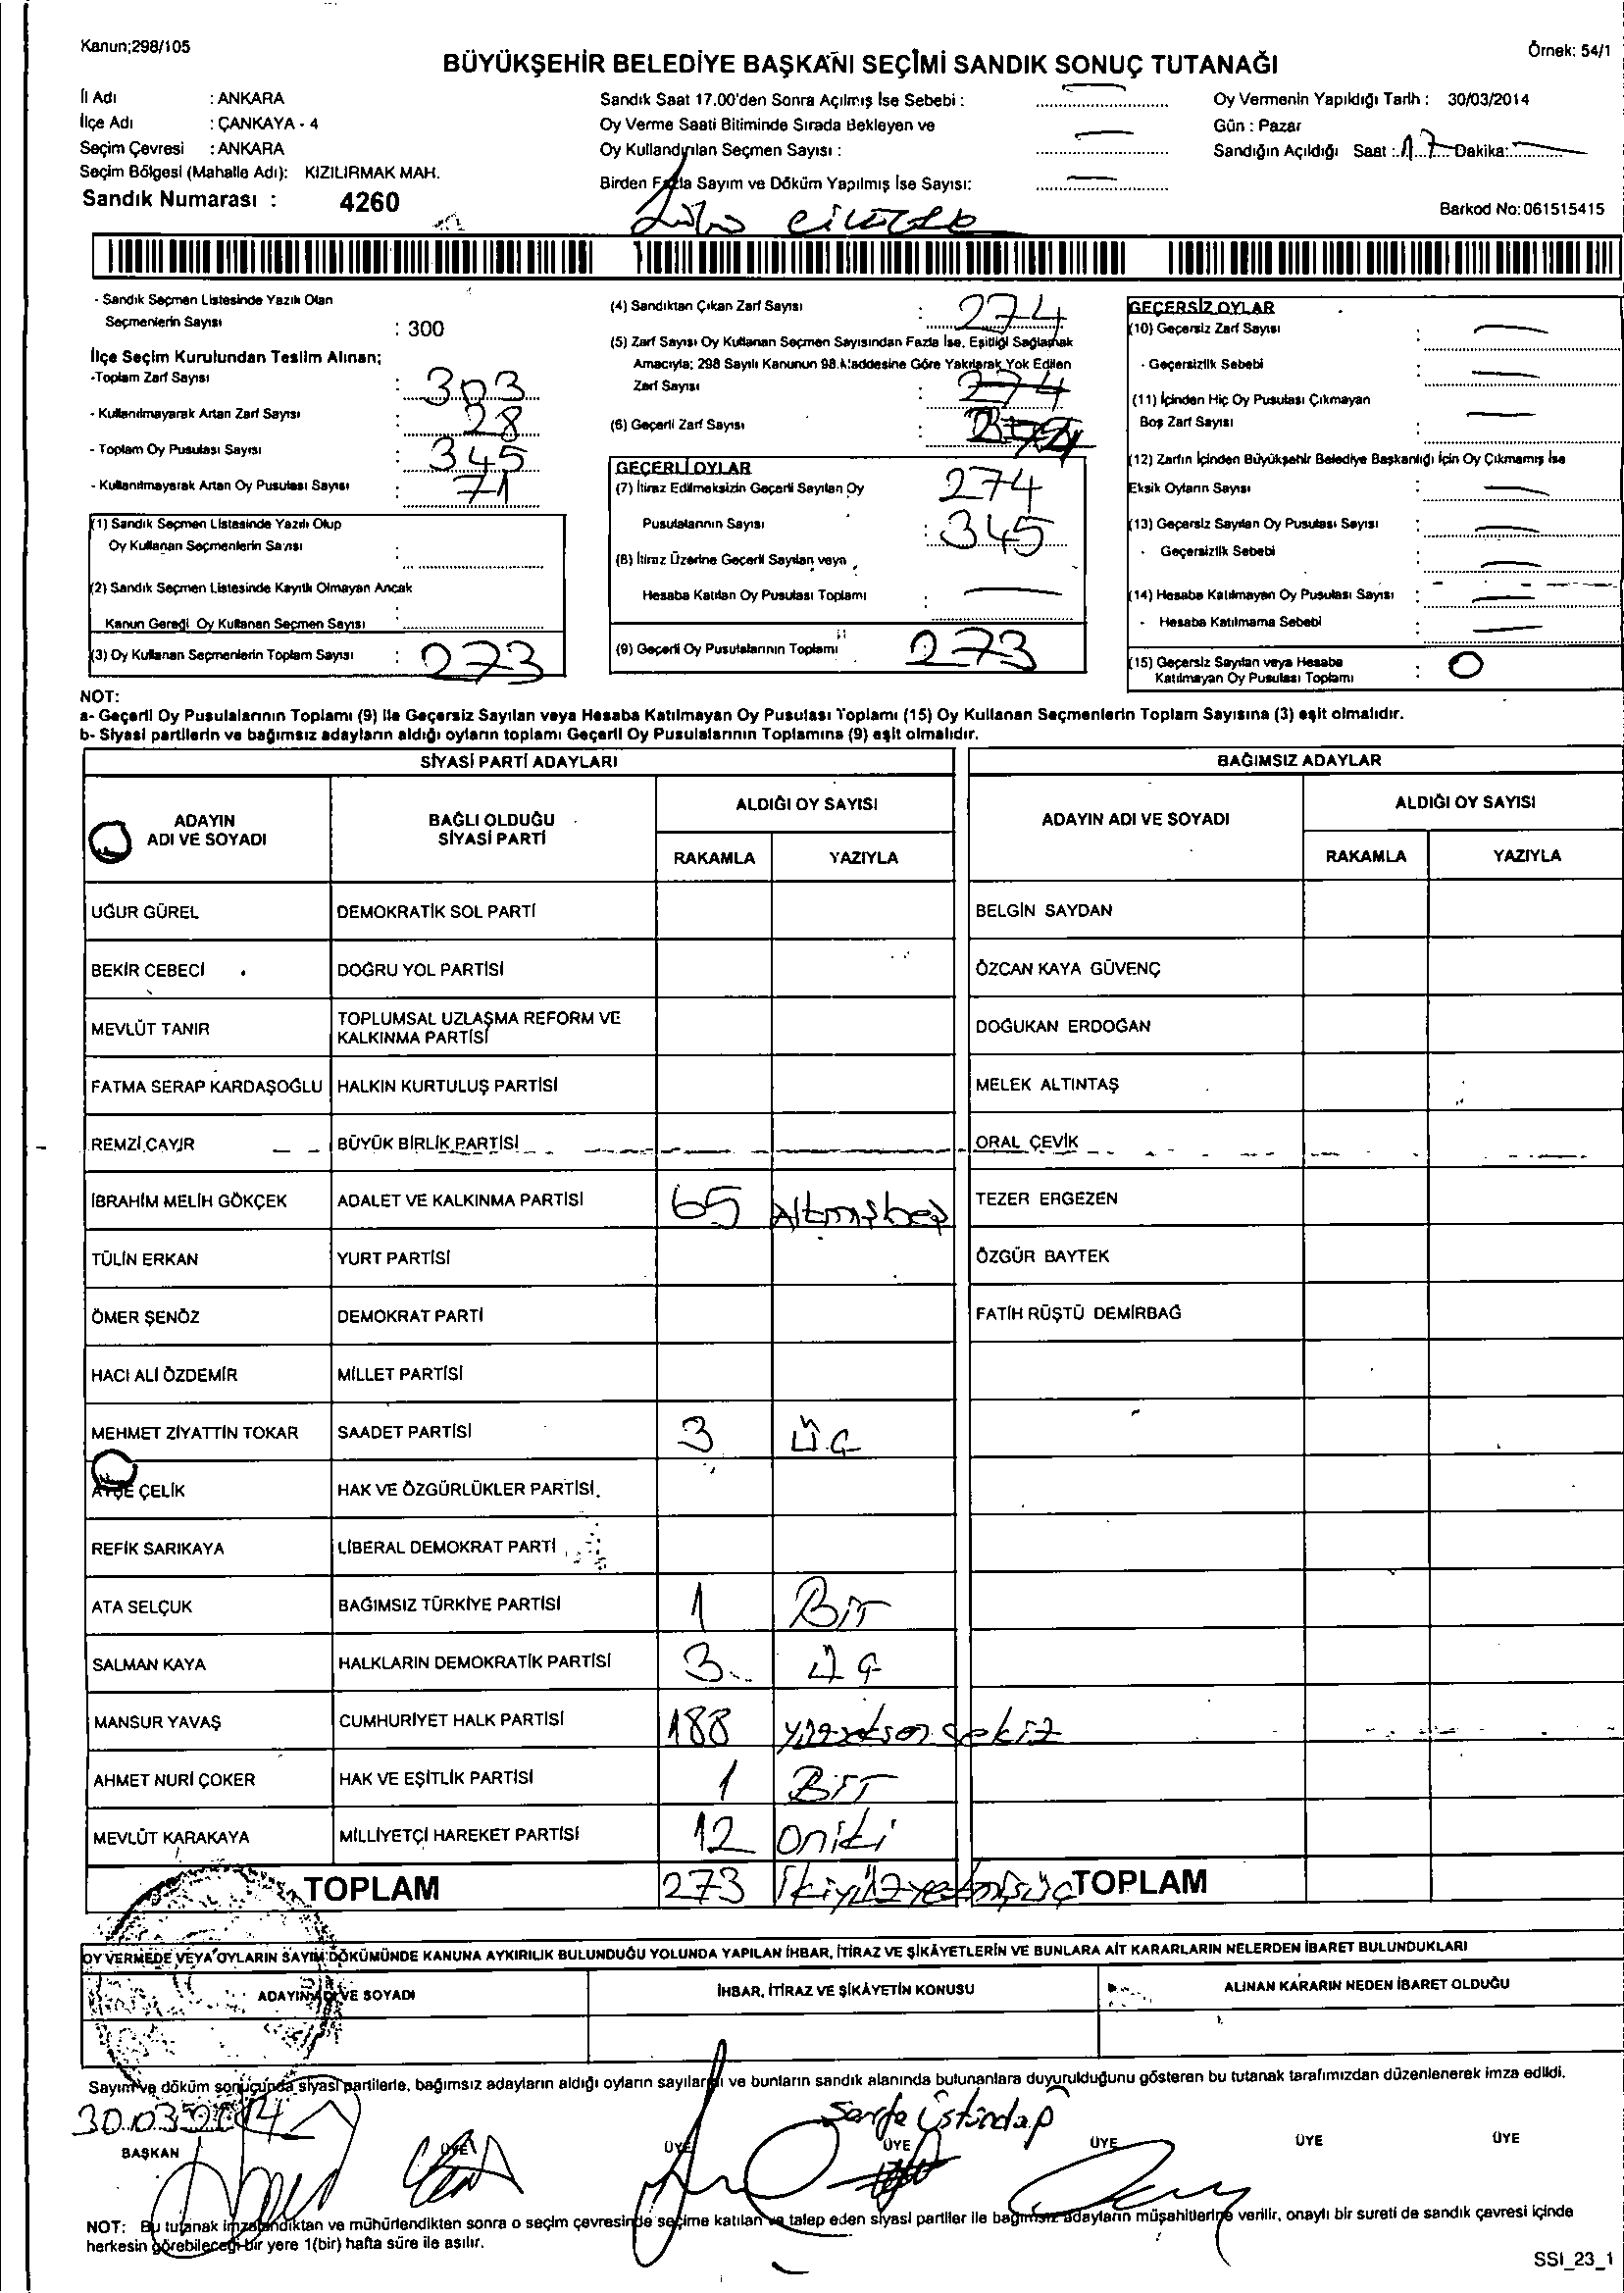 Kanun;298/105
Örnek: 54/1
BÜYÜKŞEHİR BELEDİYE BAŞKANI SEÇİMİ SANDIK SONUÇ TUTANAĞI
İl Adı : ANKARA
İlçe Adı : ÇANKAYA - 4
Seçim Çevresi : ANKARA
Seçim Bölgesi (Mahalle Adı): KIZILIRMAK MAH.
Sandık Numarası : 4260
Sandık Saat 17.00'den Sonra Açılmış İse Sebebi :
Oy Verme Saati Bitiminde Sırada Bekleyen ve
Oy Kullandırılan Seçmen Sayısı :
Birden Fazla Sayım ve Döküm Yapılmış İse Sayısı:
Oy Vermenin Yapıldığı Tarih : 30/03/2014
Gün : Pazar
Sandığın Açıldığı Saat : 17 Dakika:
Barkod No: 061515415
- Sandık Seçmen Listesinde Yazılı Olan
Seçmenlerin Sayısı : 300
İlçe Seçim Kurulundan Teslim Alınan;
-Toplam Zarf Sayısı : 303
- Kullanılmayarak Artan Zarf Sayısı : 28
- Toplam Oy Pusulası Sayısı : 345
- Kullanılmayarak Artan Oy Pusulası Sayısı : 71
(1) Sandık Seçmen Listesinde Yazılı Olup
Oy Kullanan Seçmenlerin Sayısı :
(2) Sandık Seçmen Listesinde Kayıtlı Olmayan Ancak
Kanun Gereği Oy Kullanan Seçmen Sayısı :
(3) Oy Kullanan Seçmenlerin Toplam Sayısı : 273
(4) Sandıktan Çıkan Zarf Sayısı : 274
(5) Zarf Sayısı Oy Kullanan Seçmen Sayısından Fazla İse, Eşitliği Sağlamak
Amacıyla; 298 Sayılı Kanunun 98.Maddesine Göre Yakılarak Yok Edilen
Zarf Sayısı : 274
(6) Geçerli Zarf Sayısı :
GEÇERLİ OYLAR
(7) İtiraz Edilmeksizin Geçerli Sayılan Oy 274
Pusulalarının Sayısı : 345
(8) İtiraz Üzerine Geçerli Sayılan veya
Hesaba Katılan Oy Pusulası Toplamı :
(9) Geçerli Oy Pusulalarının Toplamı : 273
GEÇERSİZ OYLAR
(10) Geçersiz Zarf Sayısı :
- Geçersizlik Sebebi :
(11) İçinden Hiç Oy Pusulası Çıkmayan
Boş Zarf Sayısı :
(12) Zarfın İçinden Büyükşehir Belediye Başkanlığı İçin Oy Çıkmamış İse
Eksik Oyların Sayısı :
(13) Geçersiz Sayılan Oy Pusulası Sayısı :
- Geçersizlik Sebebi :
(14) Hesaba Katılmayan Oy Pusulası Sayısı :
- Hesaba Katılmama Sebebi :
(15) Geçersiz Sayılan veya Hesaba
Katılmayan Oy Pusulası Toplamı : 0
NOT:
a- Geçerli Oy Pusulalarının Toplamı (9) ile Geçersiz Sayılan veya Hesaba Katılmayan Oy Pusulası Toplamı (15) Oy Kullanan Seçmenlerin Toplam Sayısına (3) eşit olmalıdır.
b- Siyasi partilerin ve bağımsız adayların aldığı oyların toplamı Geçerli Oy Pusulalarının Toplamına (9) eşit olmalıdır.
SİYASİ PARTİ ADAYLARI
BAĞIMSIZ ADAYLAR
ADAYIN
ADI VE SOYADI
BAĞLI OLDUĞU
SİYASİ PARTİ
ALDIĞI OY SAYISI
RAKAMLA YAZIYLA
ADAYIN ADI VE SOYADI
ALDIĞI OY SAYISI
RAKAMLA YAZIYLA
UĞUR GÜREL DEMOKRATİK SOL PARTİ BELGİN SAYDAN
BEKİR CEBECİ DOĞRU YOL PARTİSİ ÖZCAN KAYA GÜVENÇ
MEVLÜT TANIR TOPLUMSAL UZLAŞMA REFORM VE
KALKINMA PARTİSİ DOĞUKAN ERDOĞAN
FATMA SERAP KARDAŞOĞLU HALKIN KURTULUŞ PARTİSİ MELEK ALTINTAŞ
REMZİ ÇAYIR BÜYÜK BİRLİK PARTİSİ ORAL ÇEVİK
İBRAHİM MELİH GÖKÇEK ADALET VE KALKINMA PARTİSİ 65 Altmışbeş TEZER ERGEZEN
TÜLİN ERKAN YURT PARTİSİ ÖZGÜR BAYTEK
ÖMER ŞENÖZ DEMOKRAT PARTİ FATİH RÜŞTÜ DEMİRBAĞ
HACI ALİ ÖZDEMİR MİLLET PARTİSİ
MEHMET ZİYATTİN TOKAR SAADET PARTİSİ 3 üç
AYŞE ÇELİK HAK VE ÖZGÜRLÜKLER PARTİSİ
REFİK SARIKAYA LİBERAL DEMOKRAT PARTİ
ATA SELÇUK BAĞIMSIZ TÜRKİYE PARTİSİ 1 Bir
SALMAN KAYA HALKLARIN DEMOKRATİK PARTİSİ 3 üç
MANSUR YAVAŞ CUMHURİYET HALK PARTİSİ 188 yüzseksensekiz
AHMET NURİ ÇOKER HAK VE EŞİTLİK PARTİSİ 1 Bir
MEVLÜT KARAKAYA MİLLİYETÇİ HAREKET PARTİSİ 12 oniki
TOPLAM 273 İkiyüzyetmişüç TOPLAM
OY VERMEDE VEYA OYLARIN SAYIM DÖKÜMÜNDE KANUNA AYKIRILIK BULUNDUĞU YOLUNDA YAPILAN İHBAR, İTİRAZ VE ŞİKÂYETLERİN VE BUNLARA AİT KARARLARIN NELERDEN İBARET BULUNDUKLARI
ADAYIN ADI VE SOYADI İHBAR, İTİRAZ VE ŞİKÂYETİN KONUSU ALINAN KARARIN NEDEN İBARET OLDUĞU
Sayım ve döküm sonucunda siyasi partilerle, bağımsız adayların aldığı oyların sayılarını ve bunların sandık alanında bulunanlara duyurulduğunu gösteren bu tutanak tarafımızdan düzenlenerek imza edildi.
30.03.2014
BAŞKAN ÜYE ÜYE ÜYE ÜYE ÜYE ÜYE
NOT: Bu tutanak imzalandıktan ve mühürlendikten sonra o seçim çevresinde seçime katılan ve talep eden siyasi partiler ile bağımsız adayların müşahitlerine verilir, onaylı bir sureti de sandık çevresi içinde
herkesin görebileceği bir yere 1(bir) hafta süre ile asılır.
SSI_23_1